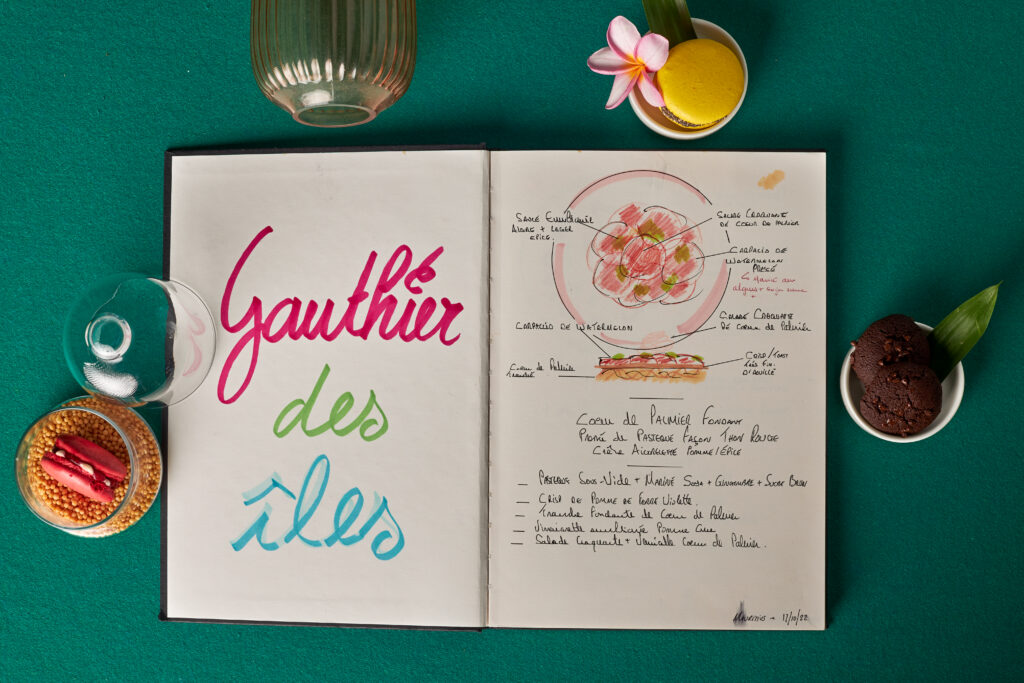 Gauthier
des
îles
Sauce
Aigre + Léger
épicé.
Salade Craquante
de coeur de palmier
Carpacio de
Watermelon
Pressé
Carpaccio de Watermelon
Salade Craquante
de Coeur de Palmier
Coeur de Palmier
Crisp/Toast
Très Fin.
Coeur de Palmier Fondant
de Pasteque Façon Thon Rouge
Crème Aigrelette Pomme/Épice
— Pasteque Sous-Vide + Mariné Soja + Gingembre + Sucre Brun
— Crisp de Pomme de Terre Violette.
— Tranche Fondante de Coeur de Palmier
— Vinaigrette Pomme
— Salade Craquante + Coeur de Palmier.
Mauritius → 17/10/22